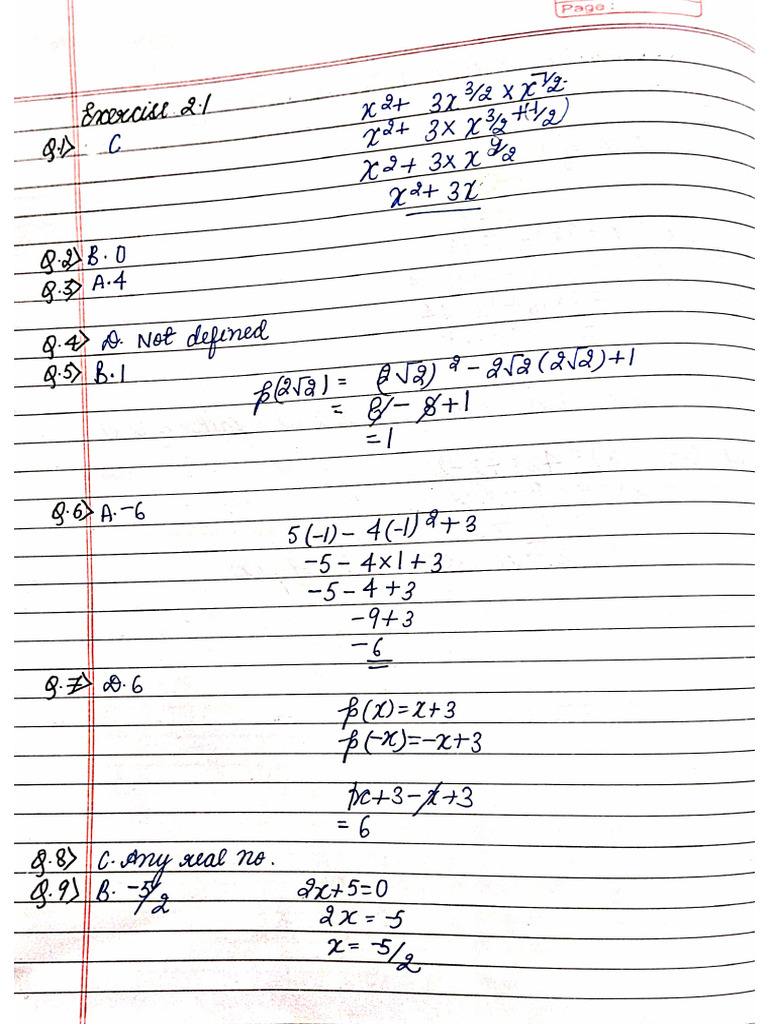 Page :
Exercise 2.1
Q.1) C
x2+ 3x^3/2 × x^-1/2
x2+ 3× x^3/2+(-1/2)
x2+ 3× x^2/2
x2+ 3x
Q.2) B. 0
Q.3) A. 4
Q.4) D. Not defined
Q.5) B. 1
p(2√2) = (2√2)^2 - 2√2(2√2)+1
= 8 - 8 +1
= 1
Q.6) A. -6
5(-1) - 4(-1)^2 + 3
-5 - 4×1 + 3
-5 - 4 + 3
-9+3
-6
Q.7) D. 6
p(x) = x+3
p(-x) = -x+3
x+3-x+3
= 6
Q.8) C. Any real no.
Q.9) B. -5/2
2x+5=0
2x = -5
x = -5/2